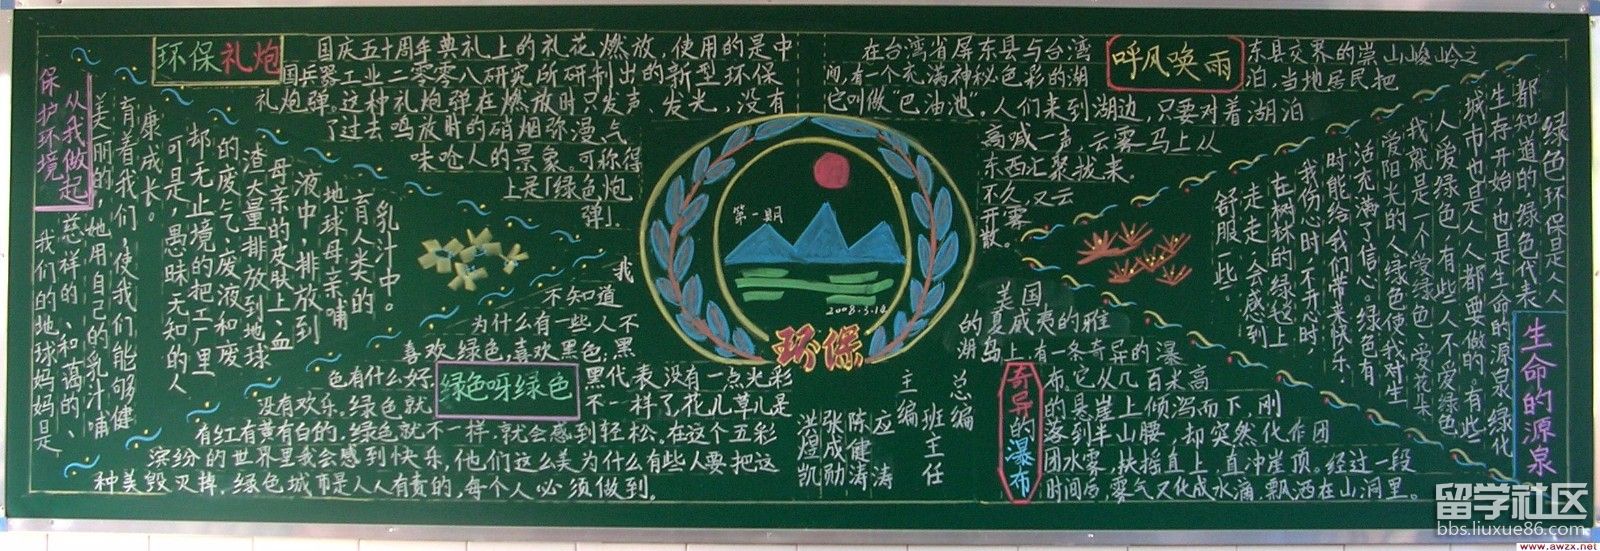 环保礼炮
国庆五十周年典礼上的礼花燃放，使用的是中
国兵器工业二零零八研究所研制出的新型环保
礼炮弹。这种礼炮弹在燃放时只发声、发光，没有
了过去鸣放时的硝烟弥漫气
味呛人的景象。可称得
上是「绿色炮
弹」
呼风唤雨
在台湾省屏东县与台湾
东县交界的崇山峻岭之
间，有一个充满神秘色彩的湖
泊，当地居民把
它叫做“巴油池”。人们来到湖边，只要对着湖泊
高喊一声，云雾马上从
东西汇聚拢来。
不久，又云
开雾
散。
保护环境
从我做起
我们的地球妈妈是
美丽的、慈祥的、和蔼的、
她用自己的乳汁哺
育着我们，使我们能够健
康成长。
可是，愚昧无知的人
却无止境的把工厂里
的废气、废液和废
渣大量排放到地球
母亲的皮肤上、血
液中，排放到
地球母亲哺
育人类的
乳汁中。
第一期
2008.3.14
环保
生命的源泉
绿色环保是人人
都知道的，绿色代表
生存开始，也是生命的源泉，绿化
城市也是人人都要做的。有些
人爱绿色，有些人不爱绿色
我就是一个爱绿色、爱花朵
爱阳光的人，绿色使我对生
活充满了信心。绿色有
时能给我们带来快乐，
我伤心时，不开心时，
在树林的绿松上
走一走，会感到
舒服一些。
绿色呀绿色
我
不知道
为什么有一些人不
喜欢绿色，喜欢黑色；黑
色有什么好，黑代表没有一点光彩
没有欢乐。绿色就不一样了，花儿草儿是
有红有黄有白的，绿色就不一样，就会感到轻松。在这个五彩
缤纷的世界里我会感到快乐，他们这么美为什么有些人要把这
种美毁灭掉，绿色城市是人人有责的，每个人必须做到。
总编
班主任
主编
应涛
陈健涛
张成勋
洪煜凯
奇异的瀑布
美国
的夏威夷的雅
湖岛上有一条奇异的瀑
布。它从几百米高
的悬崖上倾泻而下，刚
落到半山腰，却突然化作团
团水雾，扶摇直上，直冲崖顶。经过一段
时间后，雾气又化成水滴，飘洒在山洞里。
留学社区
bbs.liuxue86.com
www.awzx.net